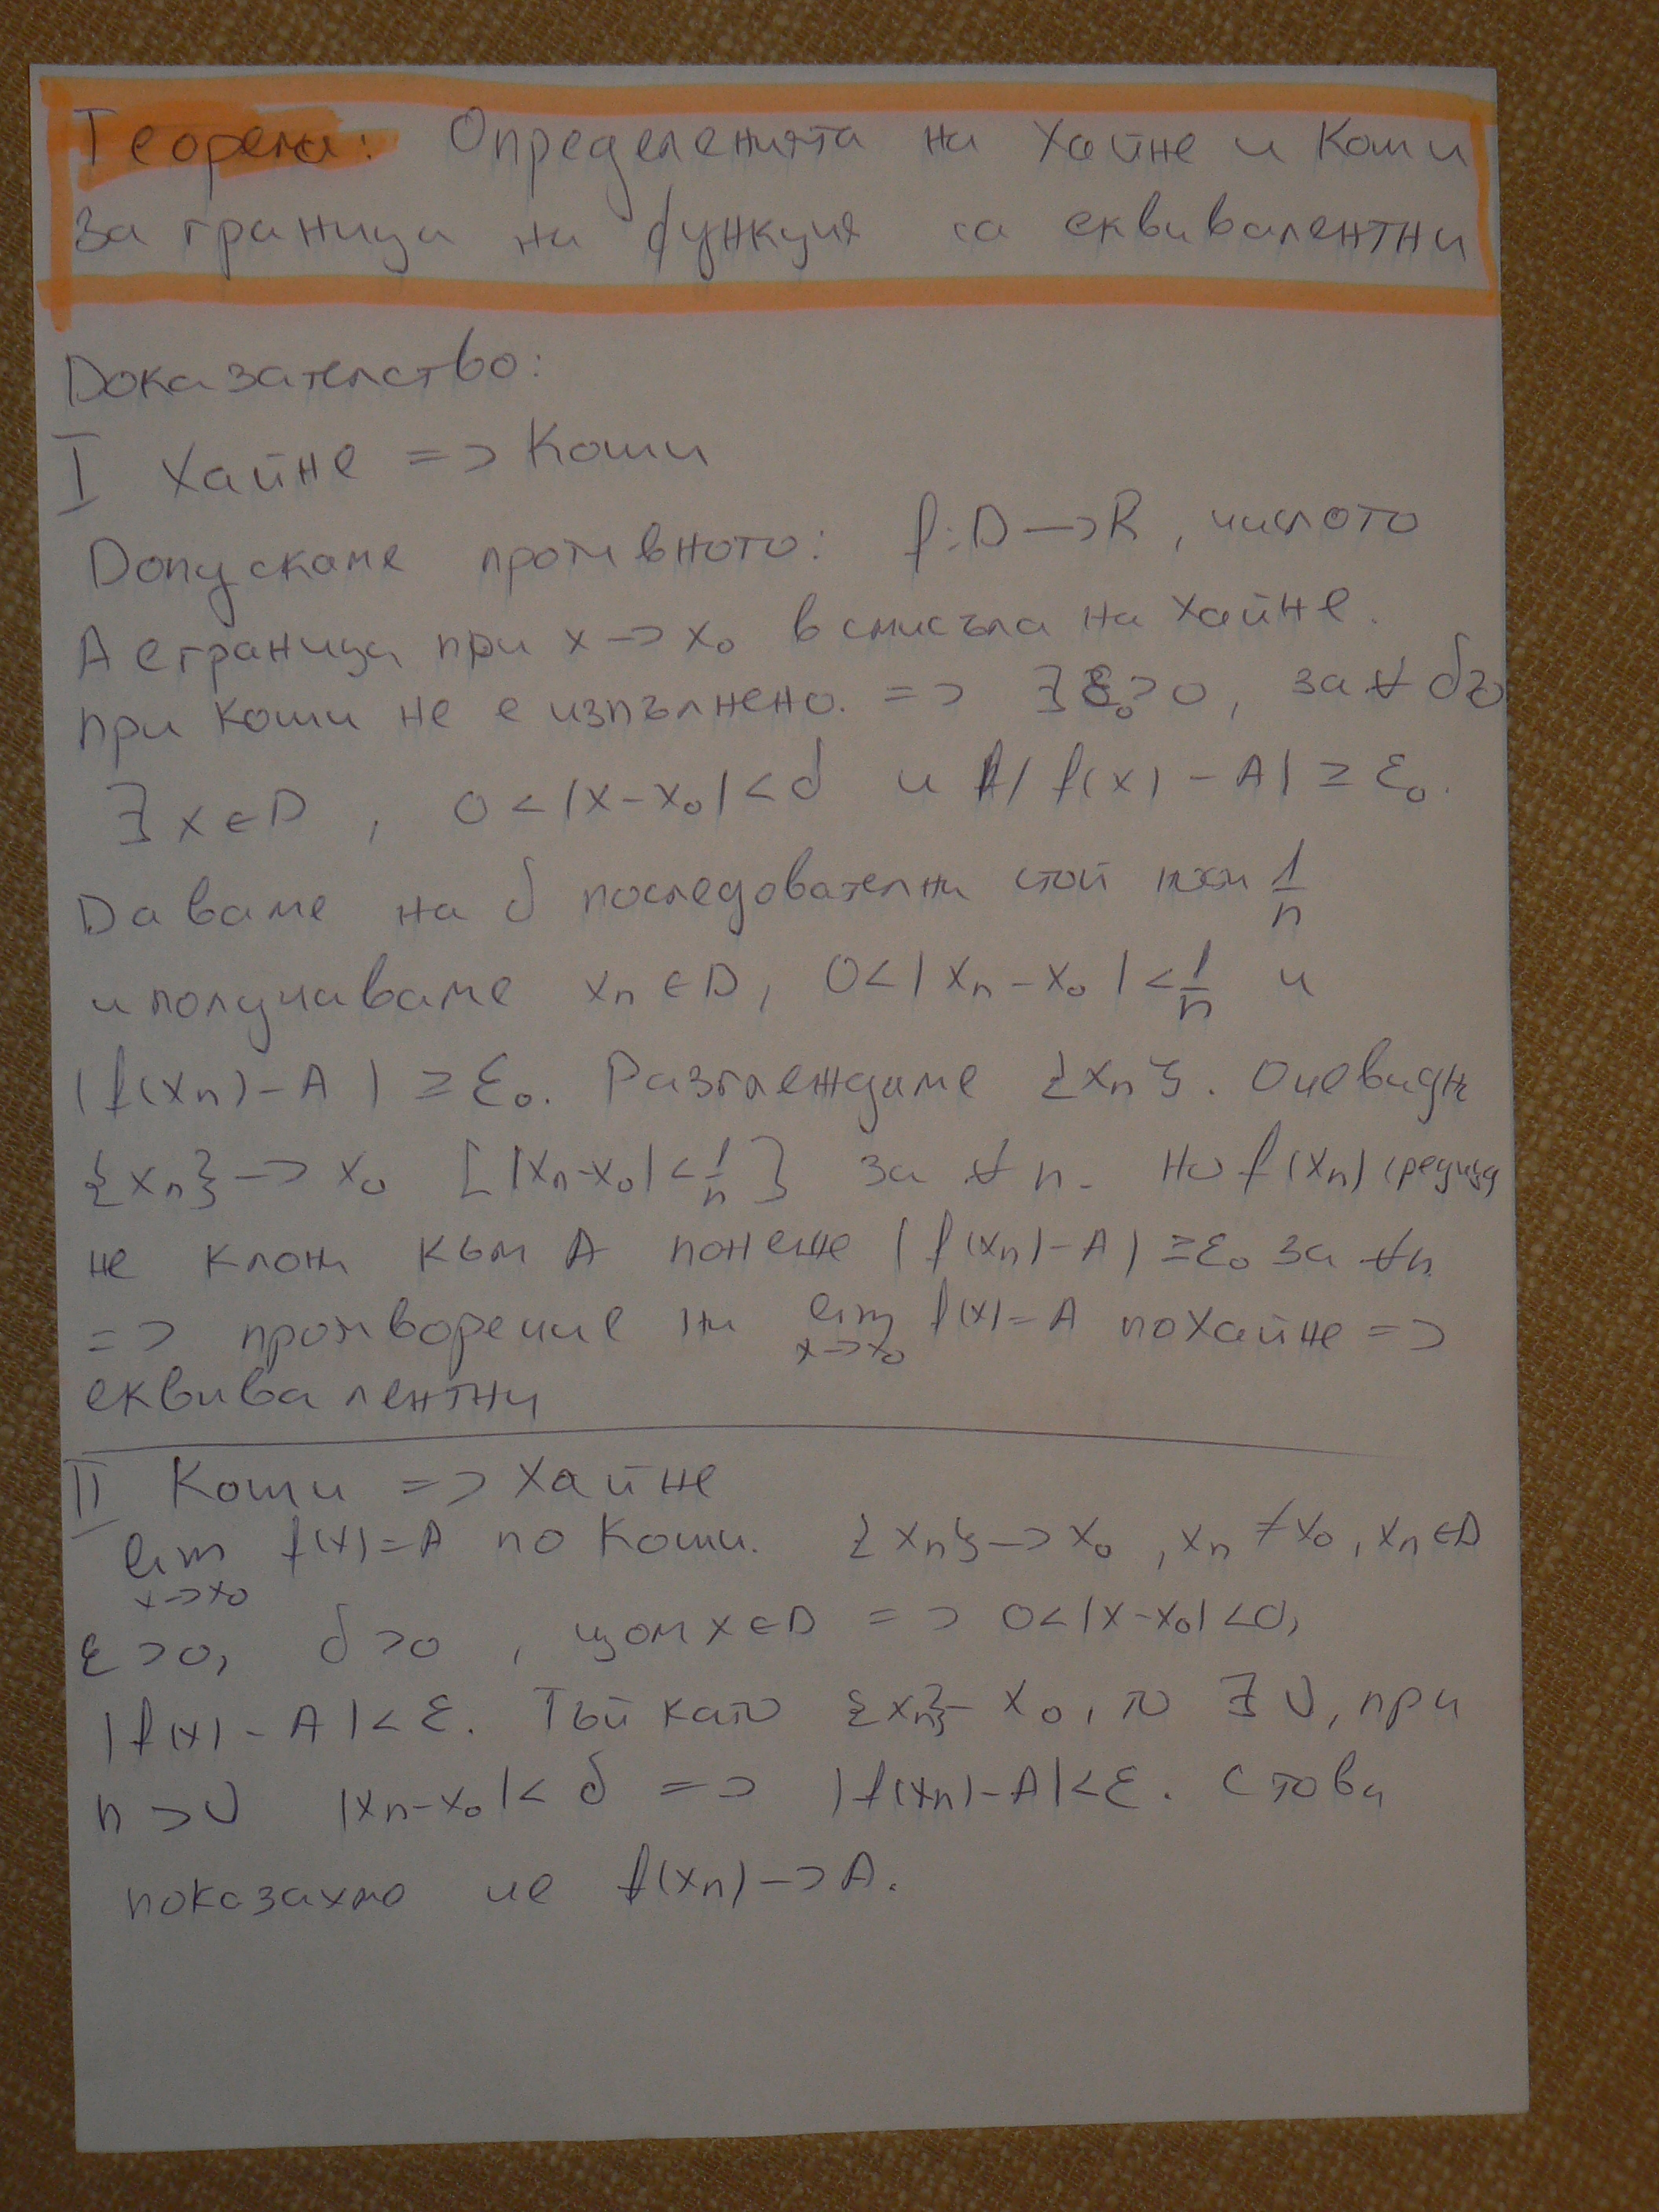 Теорема: Определенията на Хайне и Коши
за граница на функция са еквивалентни
Доказателство:
I Хайне => Коши
Допускаме противното: f: D –> R, числото
A е граница при x –> x₀ в смисъла на Хайне.
при Коши не е изпълнено. => ∃ ε₀>0, за ∀ δ>0
∃ x ∈ D, 0 < |x – x₀| < δ и |f(x) – A| ≥ ε₀.
Даваме на δ последователни стойности 1/n
и получаваме xₙ ∈ D, 0 < |xₙ – x₀| < 1/n и
|f(xₙ) – A| ≥ ε₀. Разглеждаме {xₙ}. Очевидн
{xₙ} –> x₀ [|xₙ – x₀| < 1/n} за ∀ n. Но f(xₙ) редица
не клони към A понеже |f(xₙ) – A| ≥ ε₀ за ∀n.
=> противоречие на lim x–>x₀ f(x) = A по Хайне =>
еквивалентни
II Коши => Хайне
lim x–>x₀ f(x) = A по Коши. {xₙ} –> x₀, xₙ ≠ x₀, xₙ ∈ D
ε > 0, δ > 0, щом x ∈ D => 0 < |x – x₀| < δ,
|f(x) – A| < ε. Тъй като {xₙ} – x₀, то ∃ ν, при
n > ν |xₙ – x₀| < δ => |f(xₙ) – A| < ε. С това
показахме че f(xₙ) –> A.